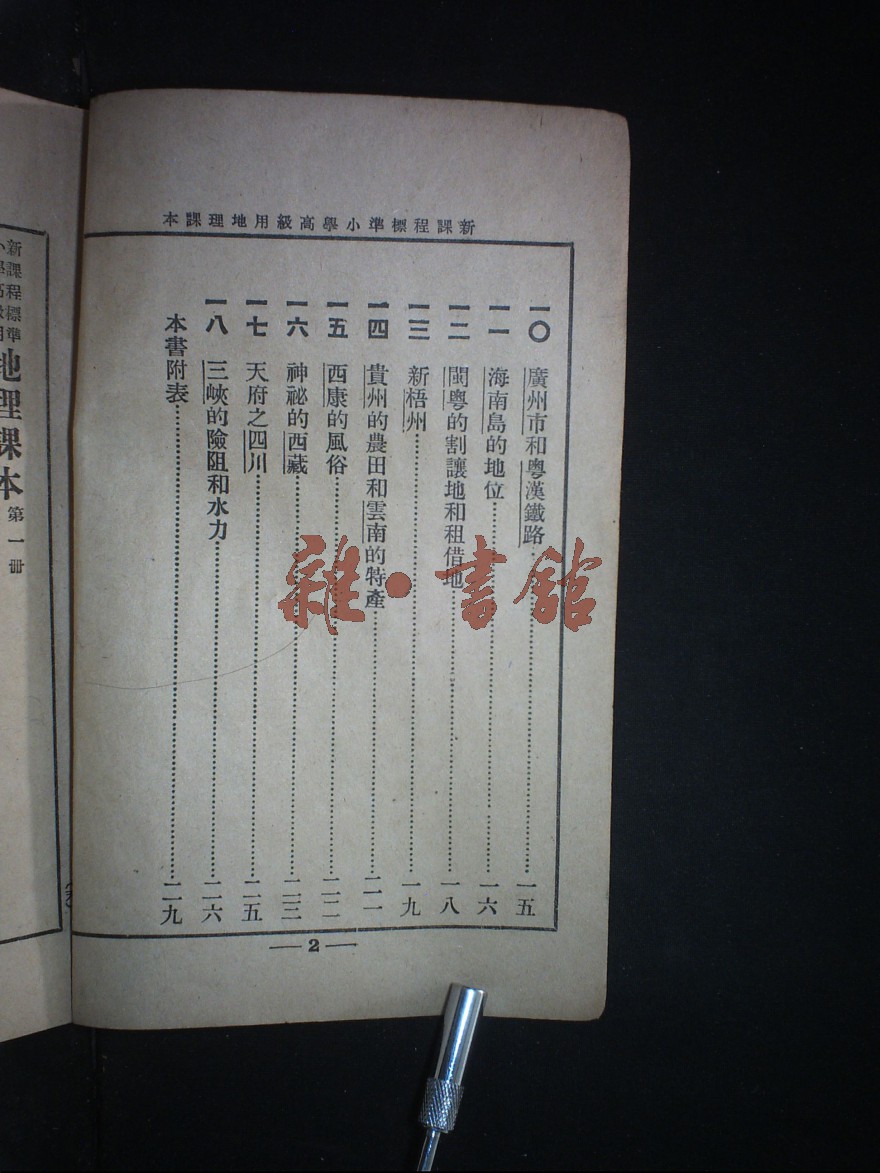 新課程標準小學高級用地理課本
一〇 廣州市和粵漢鐵路……一五
一一 海南島的地位……一六
一二 閩粵的割讓地和租借地……一八
一三 新梧州……一九
一四 貴州的農田和雲南的特產……二一
一五 西康的風俗……二二
一六 神祕的西藏……二三
一七 天府之四川……二五
一八 三峽的險阻和水力……二六
本書附表……二九
— 2 —
新課程標準
地理課本 第一冊
雜·書館